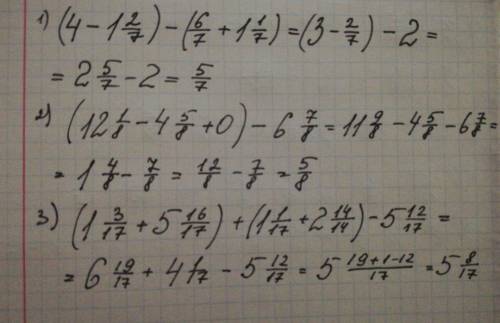 1) (4 - 1 2/7) - (6/7 + 1 1/7) = (3 - 2/7) - 2 =
= 2 5/7 - 2 = 5/7
2) (12 1/8 - 4 5/8 + 0) - 6 7/8 = 11 9/8 - 4 5/8 - 6 7/8 =
= 1 4/8 - 7/8 = 12/8 - 7/8 = 5/8
3) (1 3/17 + 5 16/17) + (1 1/17 + 2 14/14) - 5 12/17 =
= 6 19/17 + 4 1/17 - 5 12/17 = 5 (19+1-12)/17 = 5 8/17